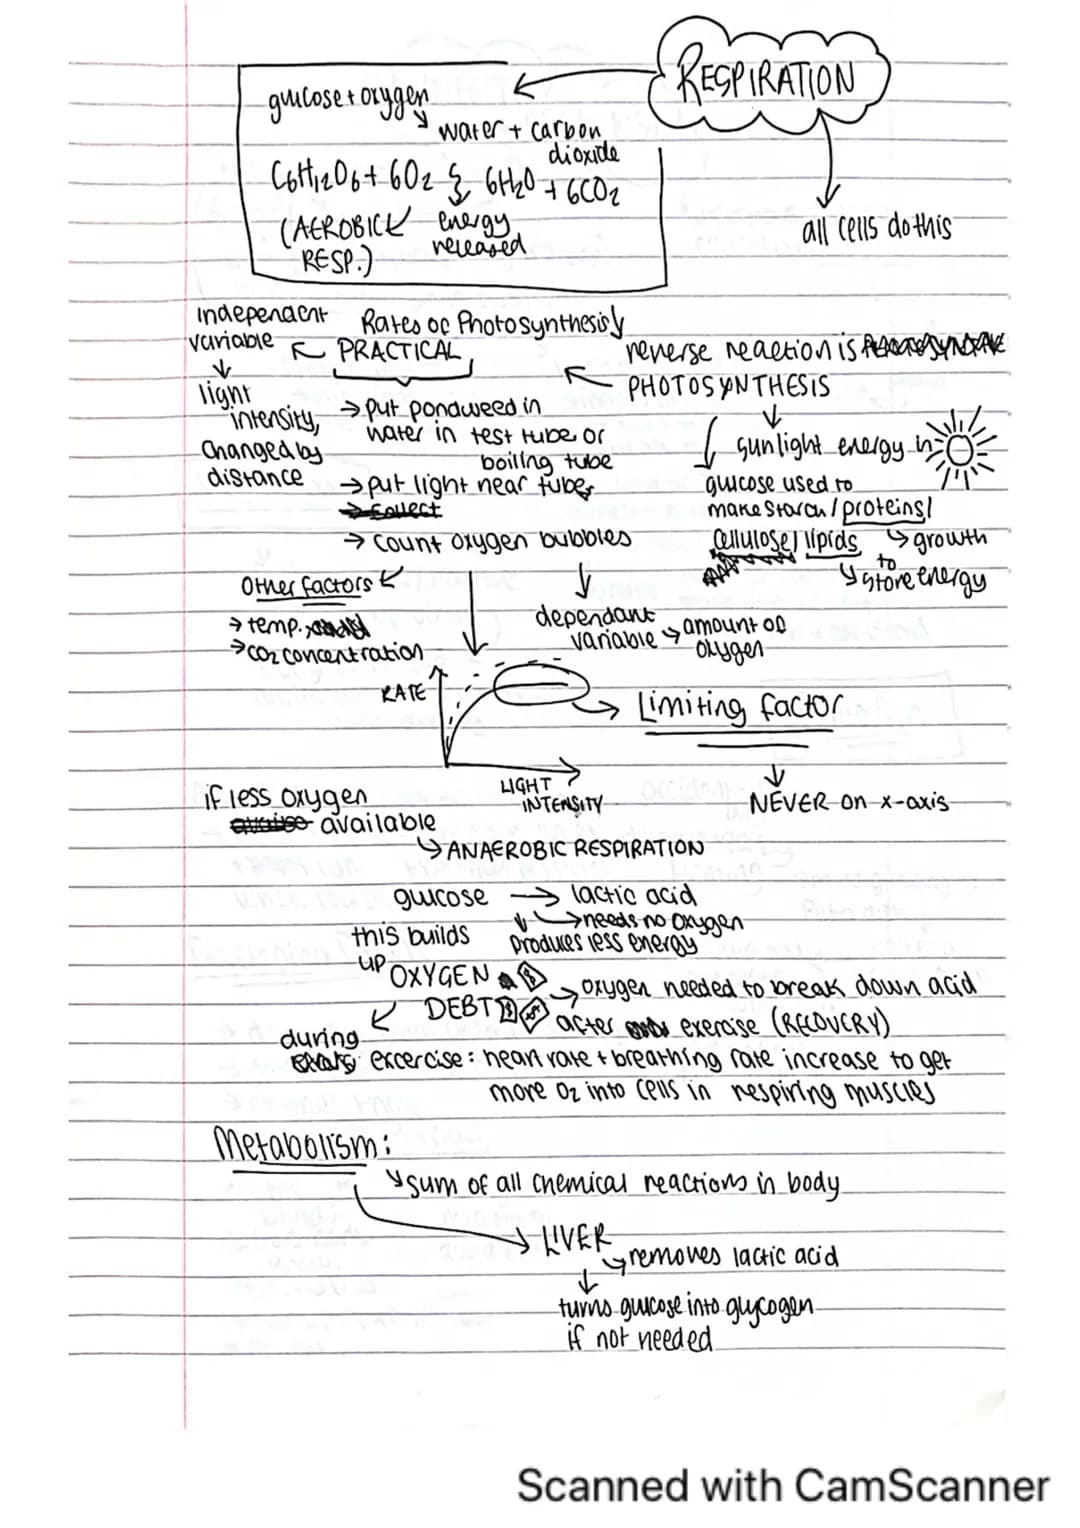 RESPIRATION
glucose + oxygen
water + carbon
dioxide
C6H12O6 + 6O2 6H2O + 6CO2
(AEROBIC energy
RESP.) released
all cells do this
independent
variable
light
intensity,
Changed by
distance
Rates of Photosynthesis
PRACTICAL
→ put pondweed in
water in test tube or
boiling tube
→ put light near tube
→ Collect
→ count oxygen bubbles
reverse reaction is
PHOTOSYNTHESIS
sunlight energy in
glucose used to
make starch / proteins /
cellulose / lipids
growth
to
store energy
Other factors
→ temp.
→ CO2 concentration
dependant
variable → amount of
oxygen
RATE
LIGHT
INTENSITY
Limiting factor
NEVER on x-axis
if less oxygen
available
ANAEROBIC RESPIRATION
glucose → lactic acid
→ needs no oxygen
produces less energy
this builds
up
OXYGEN
DEBT
→ oxygen needed to break down acid
after exercise (RECOVERY)
during
excercise: heart rate + breathing rate increase to get
more O2 into cells in respiring muscles
Metabolism:
sum of all chemical reactions in body
→ LIVER
→ removes lactic acid
turns glucose into glycogen
if not needed
Scanned with CamScanner